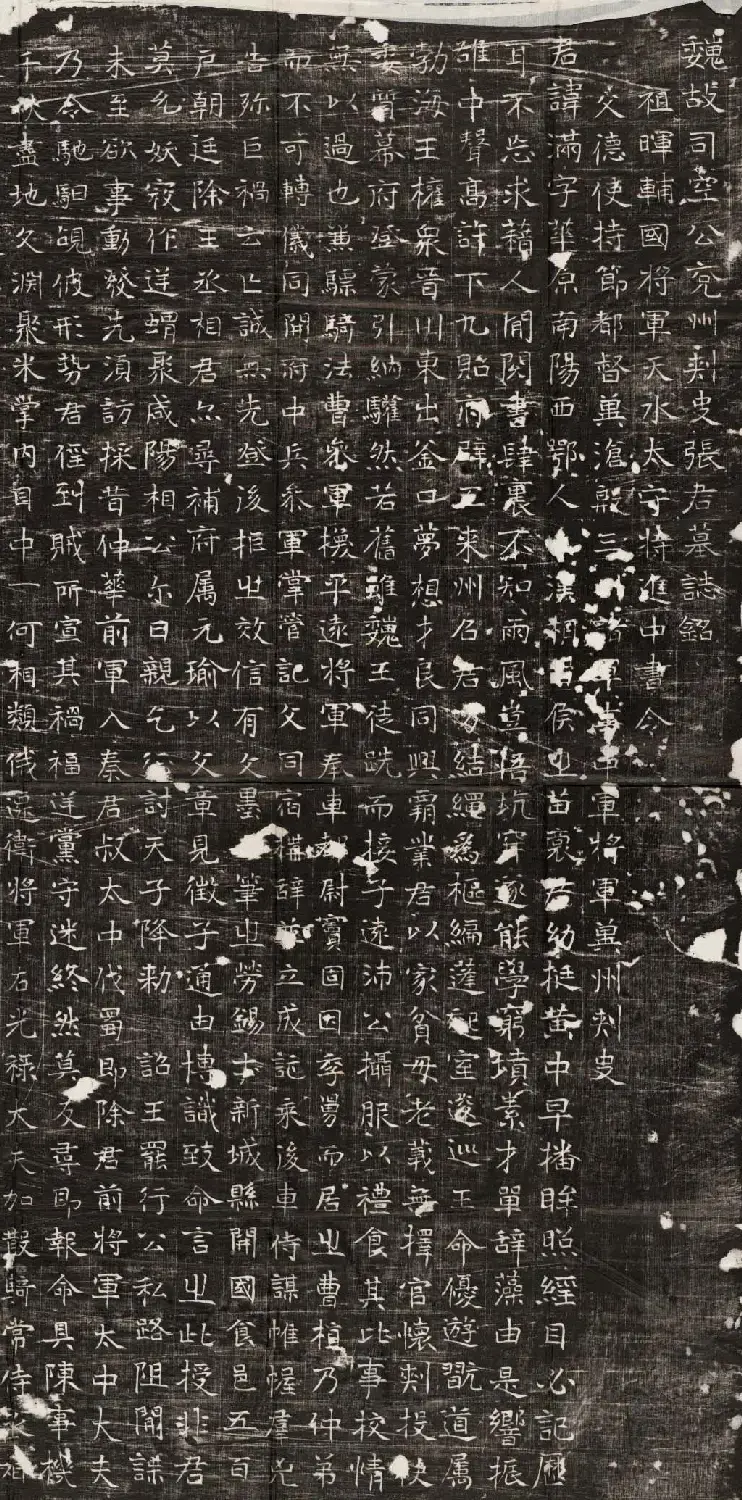 魏故司空公兗州刾史張君墓誌銘
祖暉輔國將軍天水太守特進中書令
父德使持節都督冀滄殷三州諸軍事中軍將軍冀州刾史
君諱滿字華原南陽西鄂人漢相侯之苗裔君幼挺黃中早播眸照經目必記歷
耳不忘求籍人閒閱書肆裏不知雨風豈悟坑穽遂能學窮墳素才單辞藻由是響振
雒中聲高許下九貽府辟三來州召君方結繩爲樞編蓬起室逡巡王命優遊翫道属
勃海王擁衆晉川東出釜口夢想才良同興霸業君以家貧母老義無擇官懷刾投
委質幕府登蒙引納驩然若舊雖魏王徒跣而接子遠沛公攝服以禮食其比事校情
無以過也兼驃騎法曹參軍換平遠將軍奉車都尉竇固因季專而居之曹植乃仲弟
而不可轉儀同開府中兵叅軍掌管記父同宿搆辞並立成記乘後車侍謀帷幄羣兇
告弥巨禍云亡誠無先登後拒之效信有文墨筆之勞錫士新城縣開國食邑五百
户朝廷除王丞相君尒尋補府属元瑜以文章見徵子通由博識致命言之此授非君
莫允妖寇作逆蝟聚咸陽相公尒日親乞行討天子降勑詔王罷行公私路阻開諜
未至欲事動發先湏訪採昔仲華前軍入秦君叔太中伐蜀即除君前將軍太中大夫
乃令馳馹覘彼形勢君俓到賊所宣其禍福逆黨守迷終然莫反尋即報命具陳事機
千状盡地文淵聚米掌內目中一何相類俄遷衛將軍右光祿大夫加散騎常侍